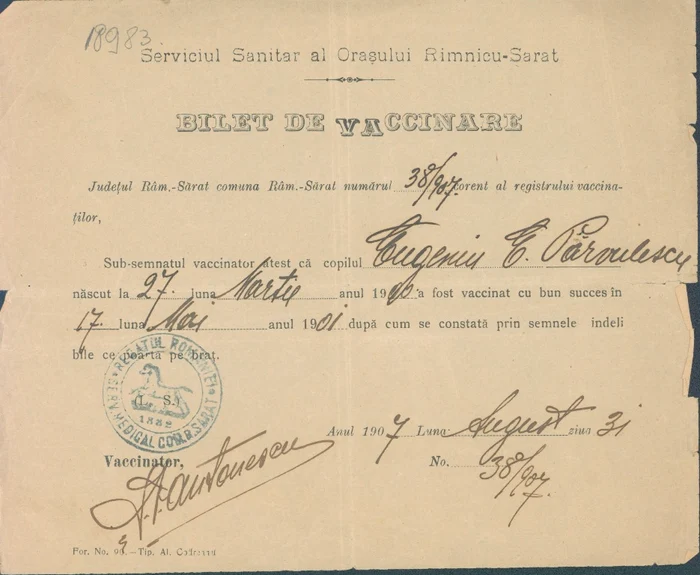 18983
Serviciul Sanitar al Orașului Rimnicu-Sarat
BILET DE VACCINARE
Județul Râm.-Sărat comuna Râm.-Sărat numărul 38/907. corent al registrului vaccina-
ților,
Sub-semnatul vaccinator atest că copilul Eugeniu C. Pârvulescu
născut la 27. luna Martie anul 1900 a fost vaccinat cu bun succes în
17. luna Mai anul 1901 după cum se constată prin semnele indeli
bile ce poartă pe braț.
REGATUL ROMÂNIEI
(L. S.)
1882
SERV. MEDICAL COM. R. SĂRAT
Anul 1907 Luna August ziua 31
Vaccinator,
No. 38/907.
Antonescu
For. No. 90.—Tip. Al.